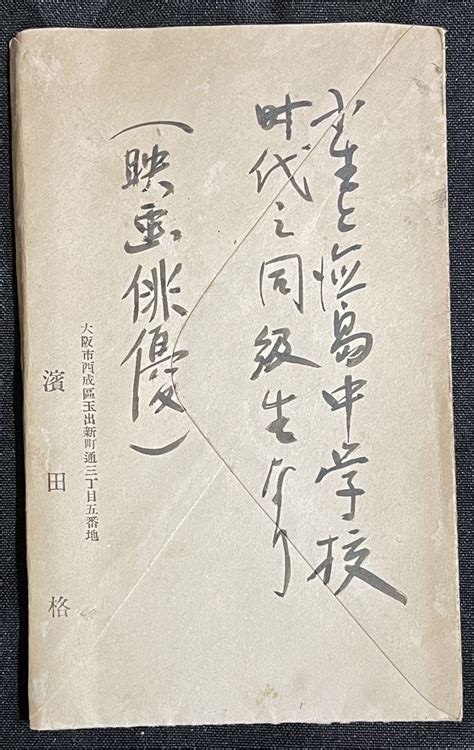 小生と徳島中学校
时代之同級生なり
(映画俳優)
大阪市西成區玉出新町通三丁目五番地
濱田格